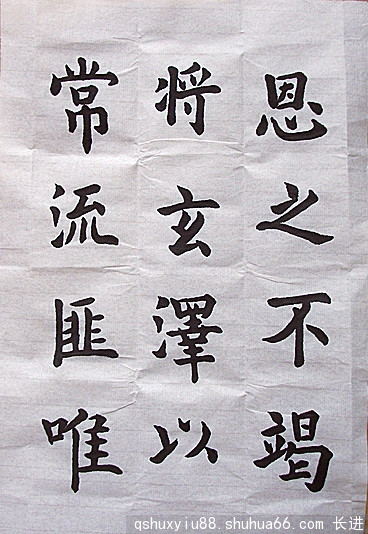 恩之不竭
将玄澤以
常流匪唯
qshuxyiu88.shuhua66.com 长进